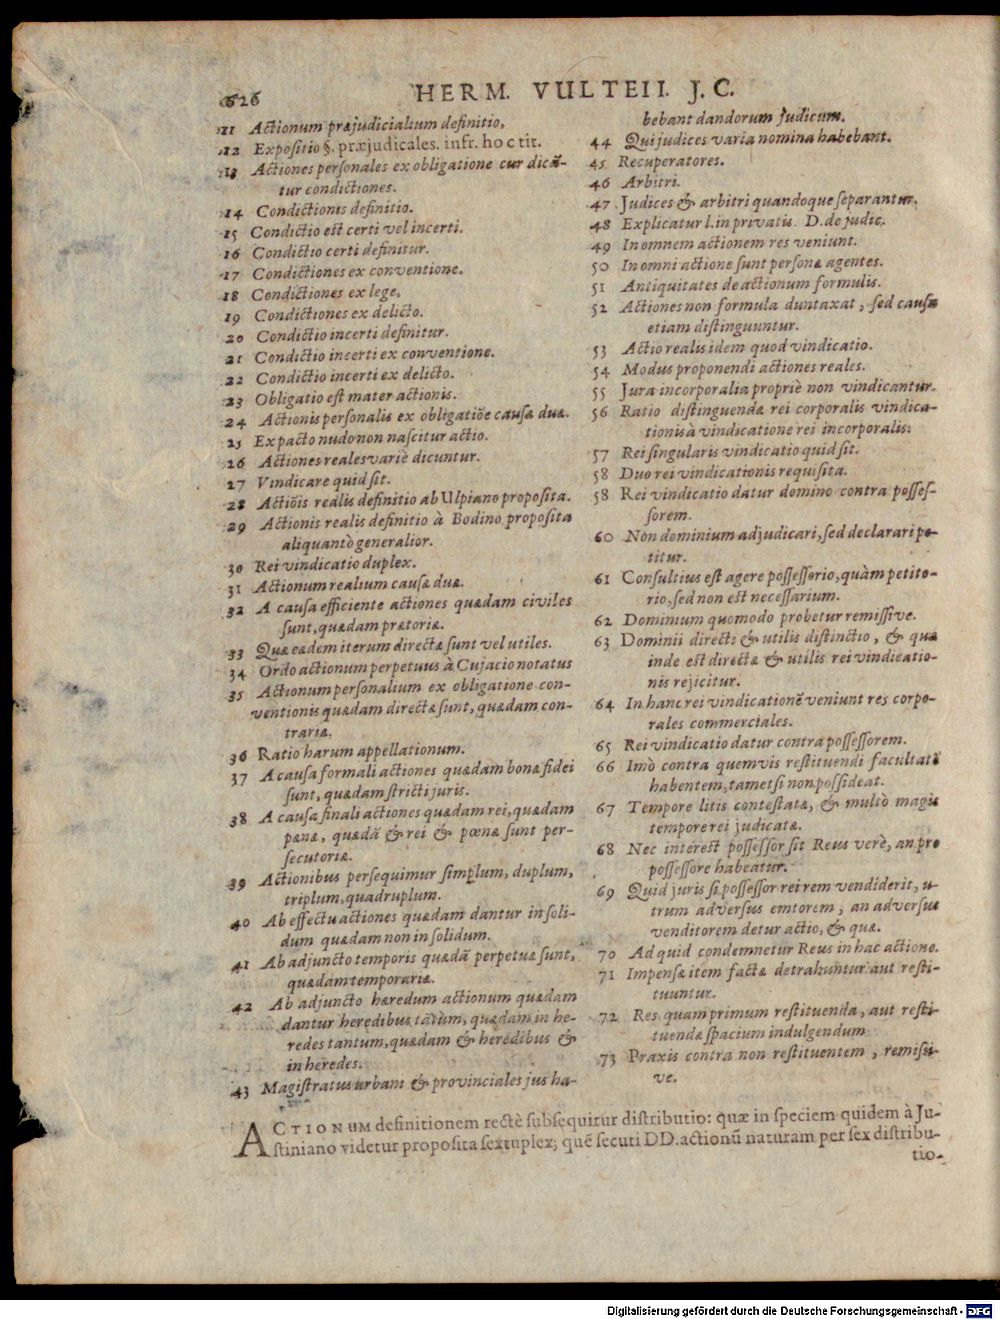 626 HERM. VULTEII. J. C.
11 Actionum præjudicialium definitio,
12 Expositio §. præjudicales. infr. hoc tit.
13 Actiones personales ex obligatione cur dicã-
tur condictiones.
14 Condictionis definitio.
15 Condictio est certi vel incerti.
16 Condictio certi definitur.
17 Condictiones ex conventione.
18 Condictiones ex lege.
19 Condictiones ex delicto.
20 Condictio incerti definitur.
21 Condictio incerti ex conventione.
22 Condictio incerti ex delicto.
23 Obligatio est mater actionis.
24 Actionis personalis ex obligatiõe causæ duæ.
25 Ex pacto nudo non nascitur actio.
26 Actiones reales variè dicuntur.
27 Vindicare quid sit.
28 Actiõis realis definitio ab Ulpiano proposita.
29 Actionis realis definitio à Bodino proposita
aliquantò generalior.
30 Rei vindicatio duplex.
31 Actionum realium causæ duæ.
32 A causa efficiente actiones quædam civiles
sunt, quædam prætoriæ.
33 Quæ eædem iterum directæ sunt vel utiles.
34 Ordo actionum perpetuus à Cujacio notatus
35 Actionum personalium ex obligatione con-
ventionis quædam directæ sunt, quædam con-
trariæ.
36 Ratio harum appellationum.
37 A causa formali actiones quædam bonæ fidei
sunt, quædam stricti juris.
38 A causa finali actiones quædam rei, quædam
pœnæ, quædã & rei & pœnæ sunt per-
secutoriæ.
39 Actionibus persequimur simplum, duplum,
triplum, quadruplum.
40 Ab effectu actiones quædam dantur in soli-
dum quædam non in solidum.
41 Ab adjuncto temporis quædã perpetuæ sunt,
quædam temporariæ.
42 Ab adjuncto hæredum actionum quædam
dantur heredibus tãtùm, quædam in he-
redes tantum, quædam & heredibus &
in heredes.
43 Magistratus urbani & provinciales jus ha-
bebant dandorum judicum.
44 Qui judices varia nomina habebant.
45 Recuperatores.
46 Arbitri.
47 Judices & arbitri quandoque separantur.
48 Explicatur l. in privatis. D. de judic.
49 In omnem actionem res veniunt.
50 In omni actione sunt personæ agentes.
51 Antiquitates de actionum formulis.
52 Actiones non formula duntaxat, sed causa
etiam distinguuntur.
53 Actio realis idem quod vindicatio.
54 Modus proponendi actiones reales.
55 Jura incorporalia propriè non vindicantur.
56 Ratio distinguendæ rei corporalis vindica-
tionis à vindicatione rei incorporalis.
57 Rei singularis vindicatio quid sit.
58 Duo rei vindicationis requisita.
58 Rei vindicatio datur domino contra posses-
sorem.
60 Non dominium adjudicari, sed declarari pe-
titur.
61 Consultius est agere possessorio, quàm petito-
rio, sed non est necessarium.
62 Dominium quomodo probetur remissive.
63 Dominii directi & utilis distinctio, & quæ
inde est directæ & utilis rei vindicatio-
nis rejicitur.
64 In hanc rei vindicationẽ veniunt res corpo-
rales commerciales.
65 Rei vindicatio datur contra possessorem.
66 Imò contra quemvis restituendi facultatẽ
habentem, tametsi non possideat.
67 Tempore litis contestatæ, & multò magis
tempore rei judicatæ.
68 Nec interest possessor sit Reus verè, an pro
possessore habeatur.
69 Quid juris si possessor rei rem vendiderit, u-
trum adversus emtorem, an adversus
venditorem detur actio, & quæ.
70 Ad quid condemnetur Reus in hac actione.
71 Impensæ item factæ detrahuntur aut resti-
tuuntur.
72 Res quam primum restituenda, aut resti-
tuendæ spacium indulgendum
73 Praxis contra non restituentem, remissi-
ve.
ACTIONUM definitionem rectè subsequitur distributio: quæ in speciem quidem à Ju-
stiniano videtur proposita sextuplex; quẽ secuti DD. actionũ naturam per sex distribu-
tio-
Digitalisierung gefördert durch die Deutsche Forschungsgemeinschaft - DFG